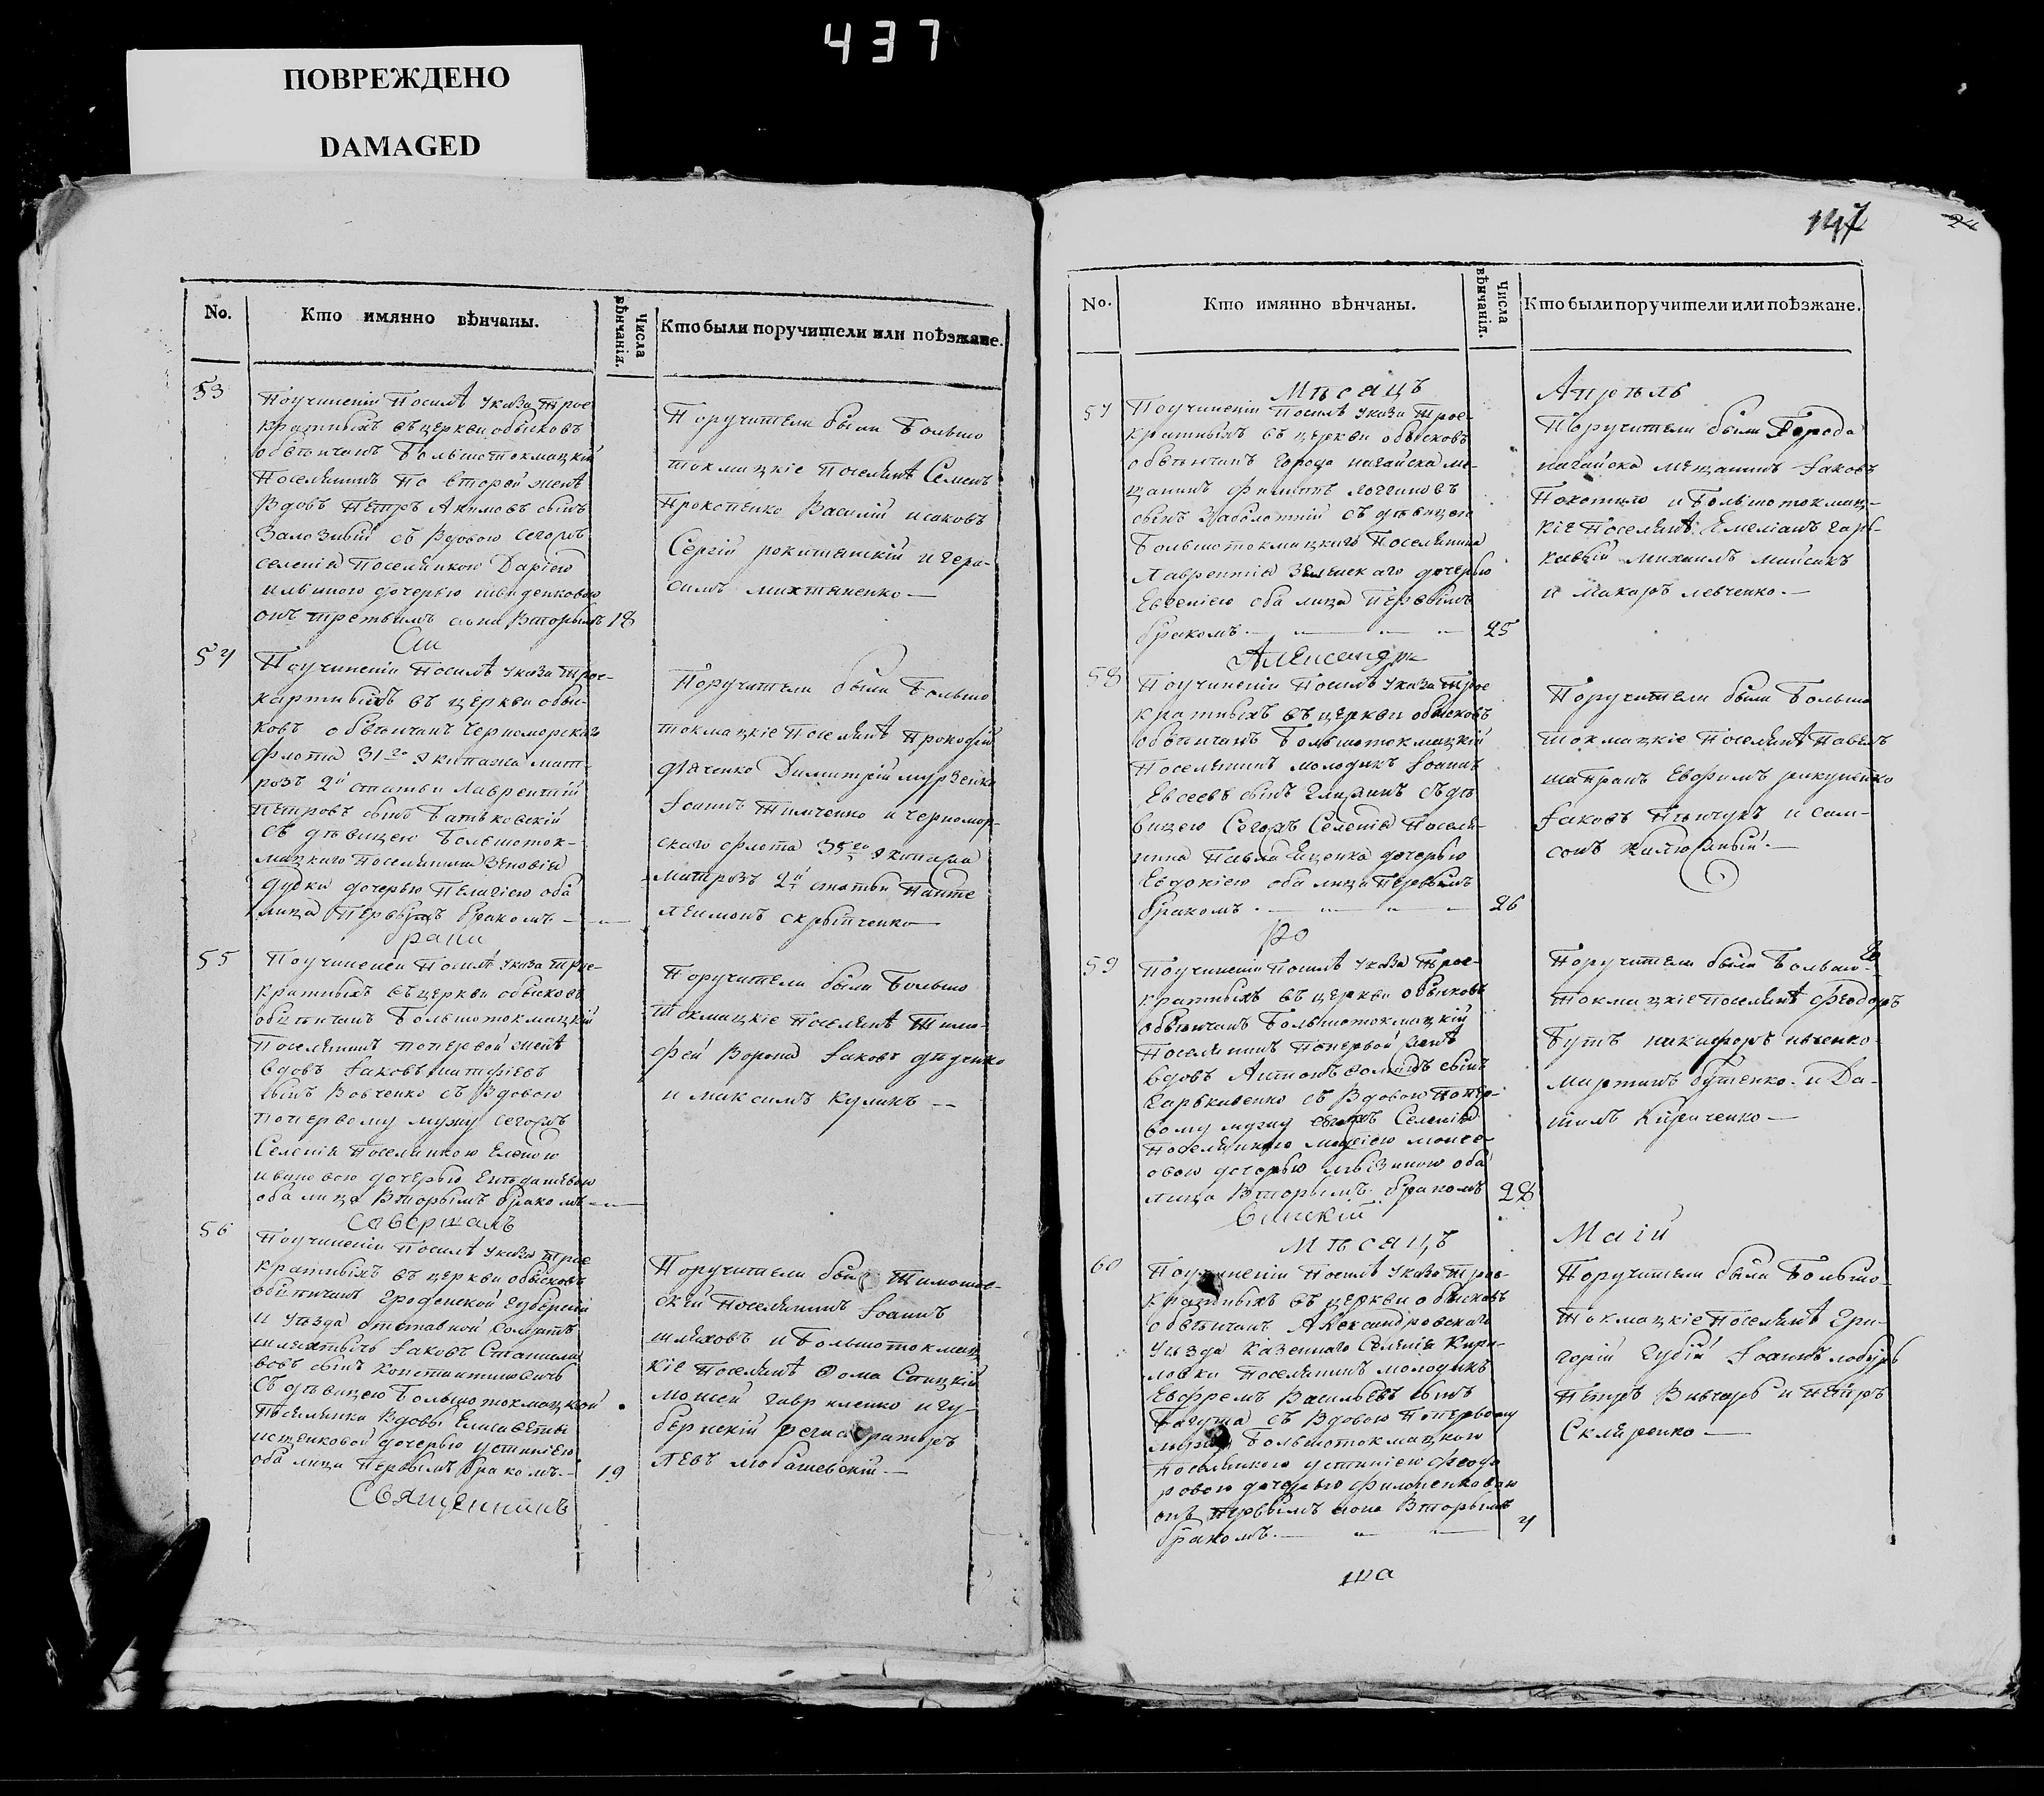 437
ПОВРЕЖДЕНО
DAMAGED
No.
Кто имянно вѣнчаны.
Числа вѣнчанія.
Кто были поручители или поѣзжане.
53
Поучиненіи Посилѣ указа трое
кратныхъ въ церкви обысковъ
обвѣнчанъ Большотокмацкій
Поселянинъ По второй женѣ
Вдовъ Петръ Акимовъ сынъ
Залозный съ Вдовою сегожъ
селенія Поселянкою Даріею
ильиною дочерью
онъ третьимъ а она Вторымъ 18
Поручители были Большо
токмацкіе Поселянѣ Семенъ
Прокопенко Василій исаковъ
Сергій рокитянскій и гера-
симъ михтяненко —
54
Поучиненіи Посилѣ указа трое-
картныхъ въ церкви обыс-
ковъ обвѣнчанъ Черноморскаго
флота 31го экипажа мат-
розъ 2й статьи Лаврентій
Петровъ сынъ Батьковскій
съ дѣвицею Большоток-
мацкаго Поселянина Зѣновія
дудки дочерью Пелагіею оба
лица Первымъ бракомъ —
Поручители были Большо
токмацкіе Поселянѣ Прокофій
дяченко Димитрій мурзенко
Іоаннъ Тимченко и черномор-
скаго флота 35го экипажа
матрозъ 2й статьи Панте
леимонъ скрыпченко —
55
Поучиненіи Посилѣ указа трое-
кратныхъ въ церкви обысковъ
обвѣнчанъ Большотокмацкій
Поселянинъ поперьвой женѣ
вдовъ Іаковъ матфіевъ
сынъ Вовченко съ Вдовою
поперьвому мужу сегожъ
Селенія Поселянкою Еленою
ивановою дочерью
оба лица Вторымъ бракомъ —
Поручители были Большо
токмацкіе Поселянѣ Тимо-
фей Ворона Іаковъ дяченко
и максимъ куликъ —
56
Совершалъ
Поучиненіи Посилѣ указа трое
кратныхъ въ церкви обысковъ
обвѣнчанъ Гроденской губерніи
и уѣзда отставной солдатъ
шляхтычъ Іаковъ Станисла
вовъ сынъ Константиновичъ
Съ дѣвицею Большотокмацкой
Поселянки Вдовы Елисаветы
дочерью устиніею
оба лица Первымъ бракомъ — 19
Священникъ
Поручители были Тимошов-
скій Поселянинъ Іоаннъ
шляховъ и Большотокмац
кіе Поселянѣ Ѳома Спицкій
моисей гавриленко и гу-
бернскій регистраторъ
левъ любашевскій —
147
24
No.
Кто имянно вѣнчаны.
Числа вѣнчанія.
Кто были поручители или поѣзжане.
Мѣсяцъ
Апрѣль
57
Поучиненіи Посилѣ указа трое-
кратныхъ въ церкви обысковъ
обвѣнчанъ города нагайска ме-
щанинъ филипъ логгиновъ
сынъ Заболотній съ дѣвицею
Большотокмацкаго Поселянина
Лаврентія Зеленскаго дочерью
Евгеніею оба лица Первымъ
бракомъ — 25
Поручители были Города
нагайска мещанинъ Іаковъ
и Большотокмац-
кіе Поселянѣ Емеліанъ гарь-
кавый михаилъ
и макаръ левченко —
Александръ
58
Поучиненіи Посилѣ указа трое
кратныхъ въ церкви обысковъ
обвѣнчанъ Большотокмацкій
Поселянинъ молодикъ Іоаннъ
Евсеевъ сынъ съ дѣ
вицею Сегожъ Селенія Поселя-
нина Павла Яценка дочерью
Евдокіею оба лица Первымъ
бракомъ — 26
Поручители были Большо
токмацкіе Поселянѣ Павелъ
шапранъ Евфимъ
Іаковъ и сам-
сонъ калюжный —
ро
59
Поучиненіи Посилѣ указа Трое-
кратныхъ въ церкви обысковъ
обвѣнчанъ Большотокмацкій
Поселянинъ Поперьвой женѣ
вдовъ Антонъ сынъ
Гарькавенко съ Вдовою Попер-
вому мужу сегожъ Селенія
Поселянкою маріею моисе-
овою дочерью оба
лица Вторымъ бракомъ 28
Поручители были Большо-
токмацкіе Поселянѣ феодоръ
Бутъ никифоръ ивченко
мартинъ бутенко и Да-
ніилъ Кириченко —
Мѣсяцъ
Маій
60
Поучиненіи Посилѣ указа Трое-
кратныхъ въ церкви обысковъ
обвѣнчанъ Александровскаго
уѣзда казеннаго Селенія Кири-
ловки Поселянинъ молодикъ
Евфремъ Васильевъ сынъ
съ Вдовою Поперьвому
мужу Большотокмацкою
Поселянкою устиніею феодо
ровою дочерью филоненковою
онъ первымъ аона Вторымъ
бракомъ — 4
Поручители были Большо-
токмацкіе Поселянѣ Гри-
горій Губій Іоаннъ лобурь
Петръ Вивчарь и Петръ
Скляренко —